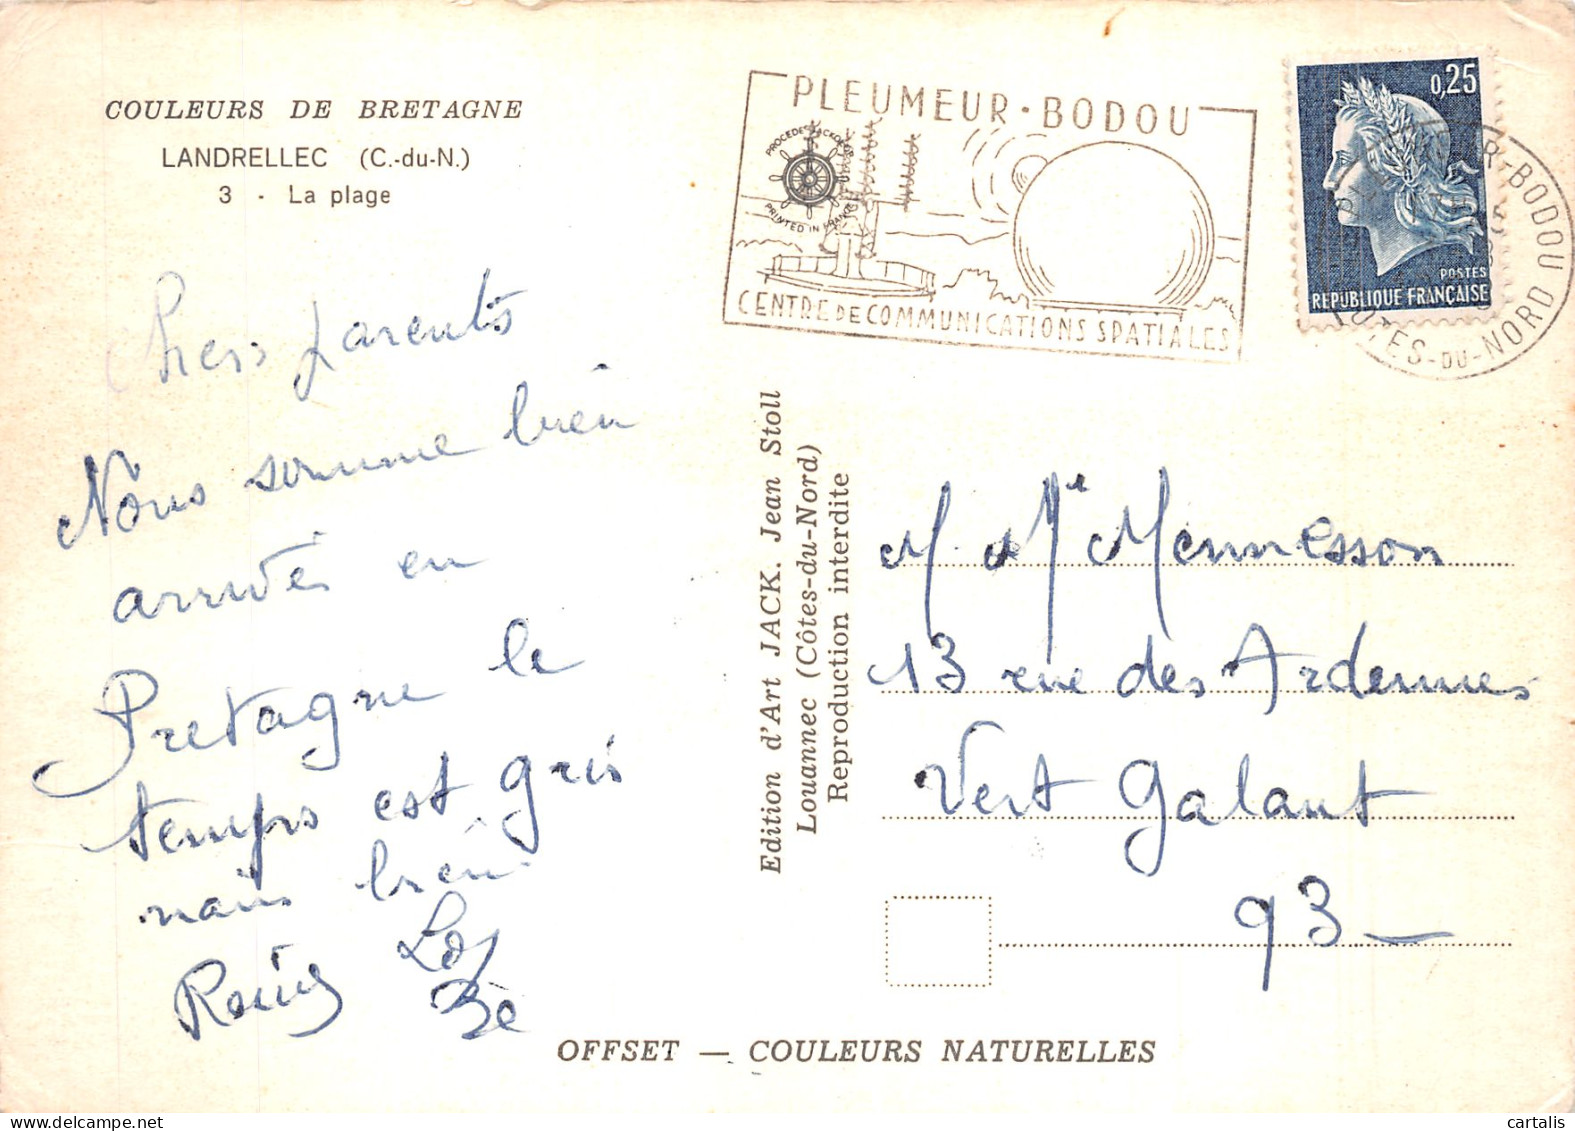 COULEURS DE BRETAGNE
LANDRELLEC (C.-du-N.)
3 - La plage
Chers parents
Nous somme bien
arrivés en
Bretagne le
temps est gris
mais bien
PLEUMEUR·BODOU
PRINTED IN FRANCE
CENTRE DE COMMUNICATIONS SPATIALES
0,25
POSTES
REPUBLIQUE FRANÇAISE
R-BODOU
COTES-DU-NORD
Edition d'Art JACK. Jean Stoll
Louannec (Côtes-du-Nord)
Reproduction interdite
M. Me Mennesson
13 rue des Ardennes
Vert Galant
93
OFFSET — COULEURS NATURELLES
cartalis
delcampe.net